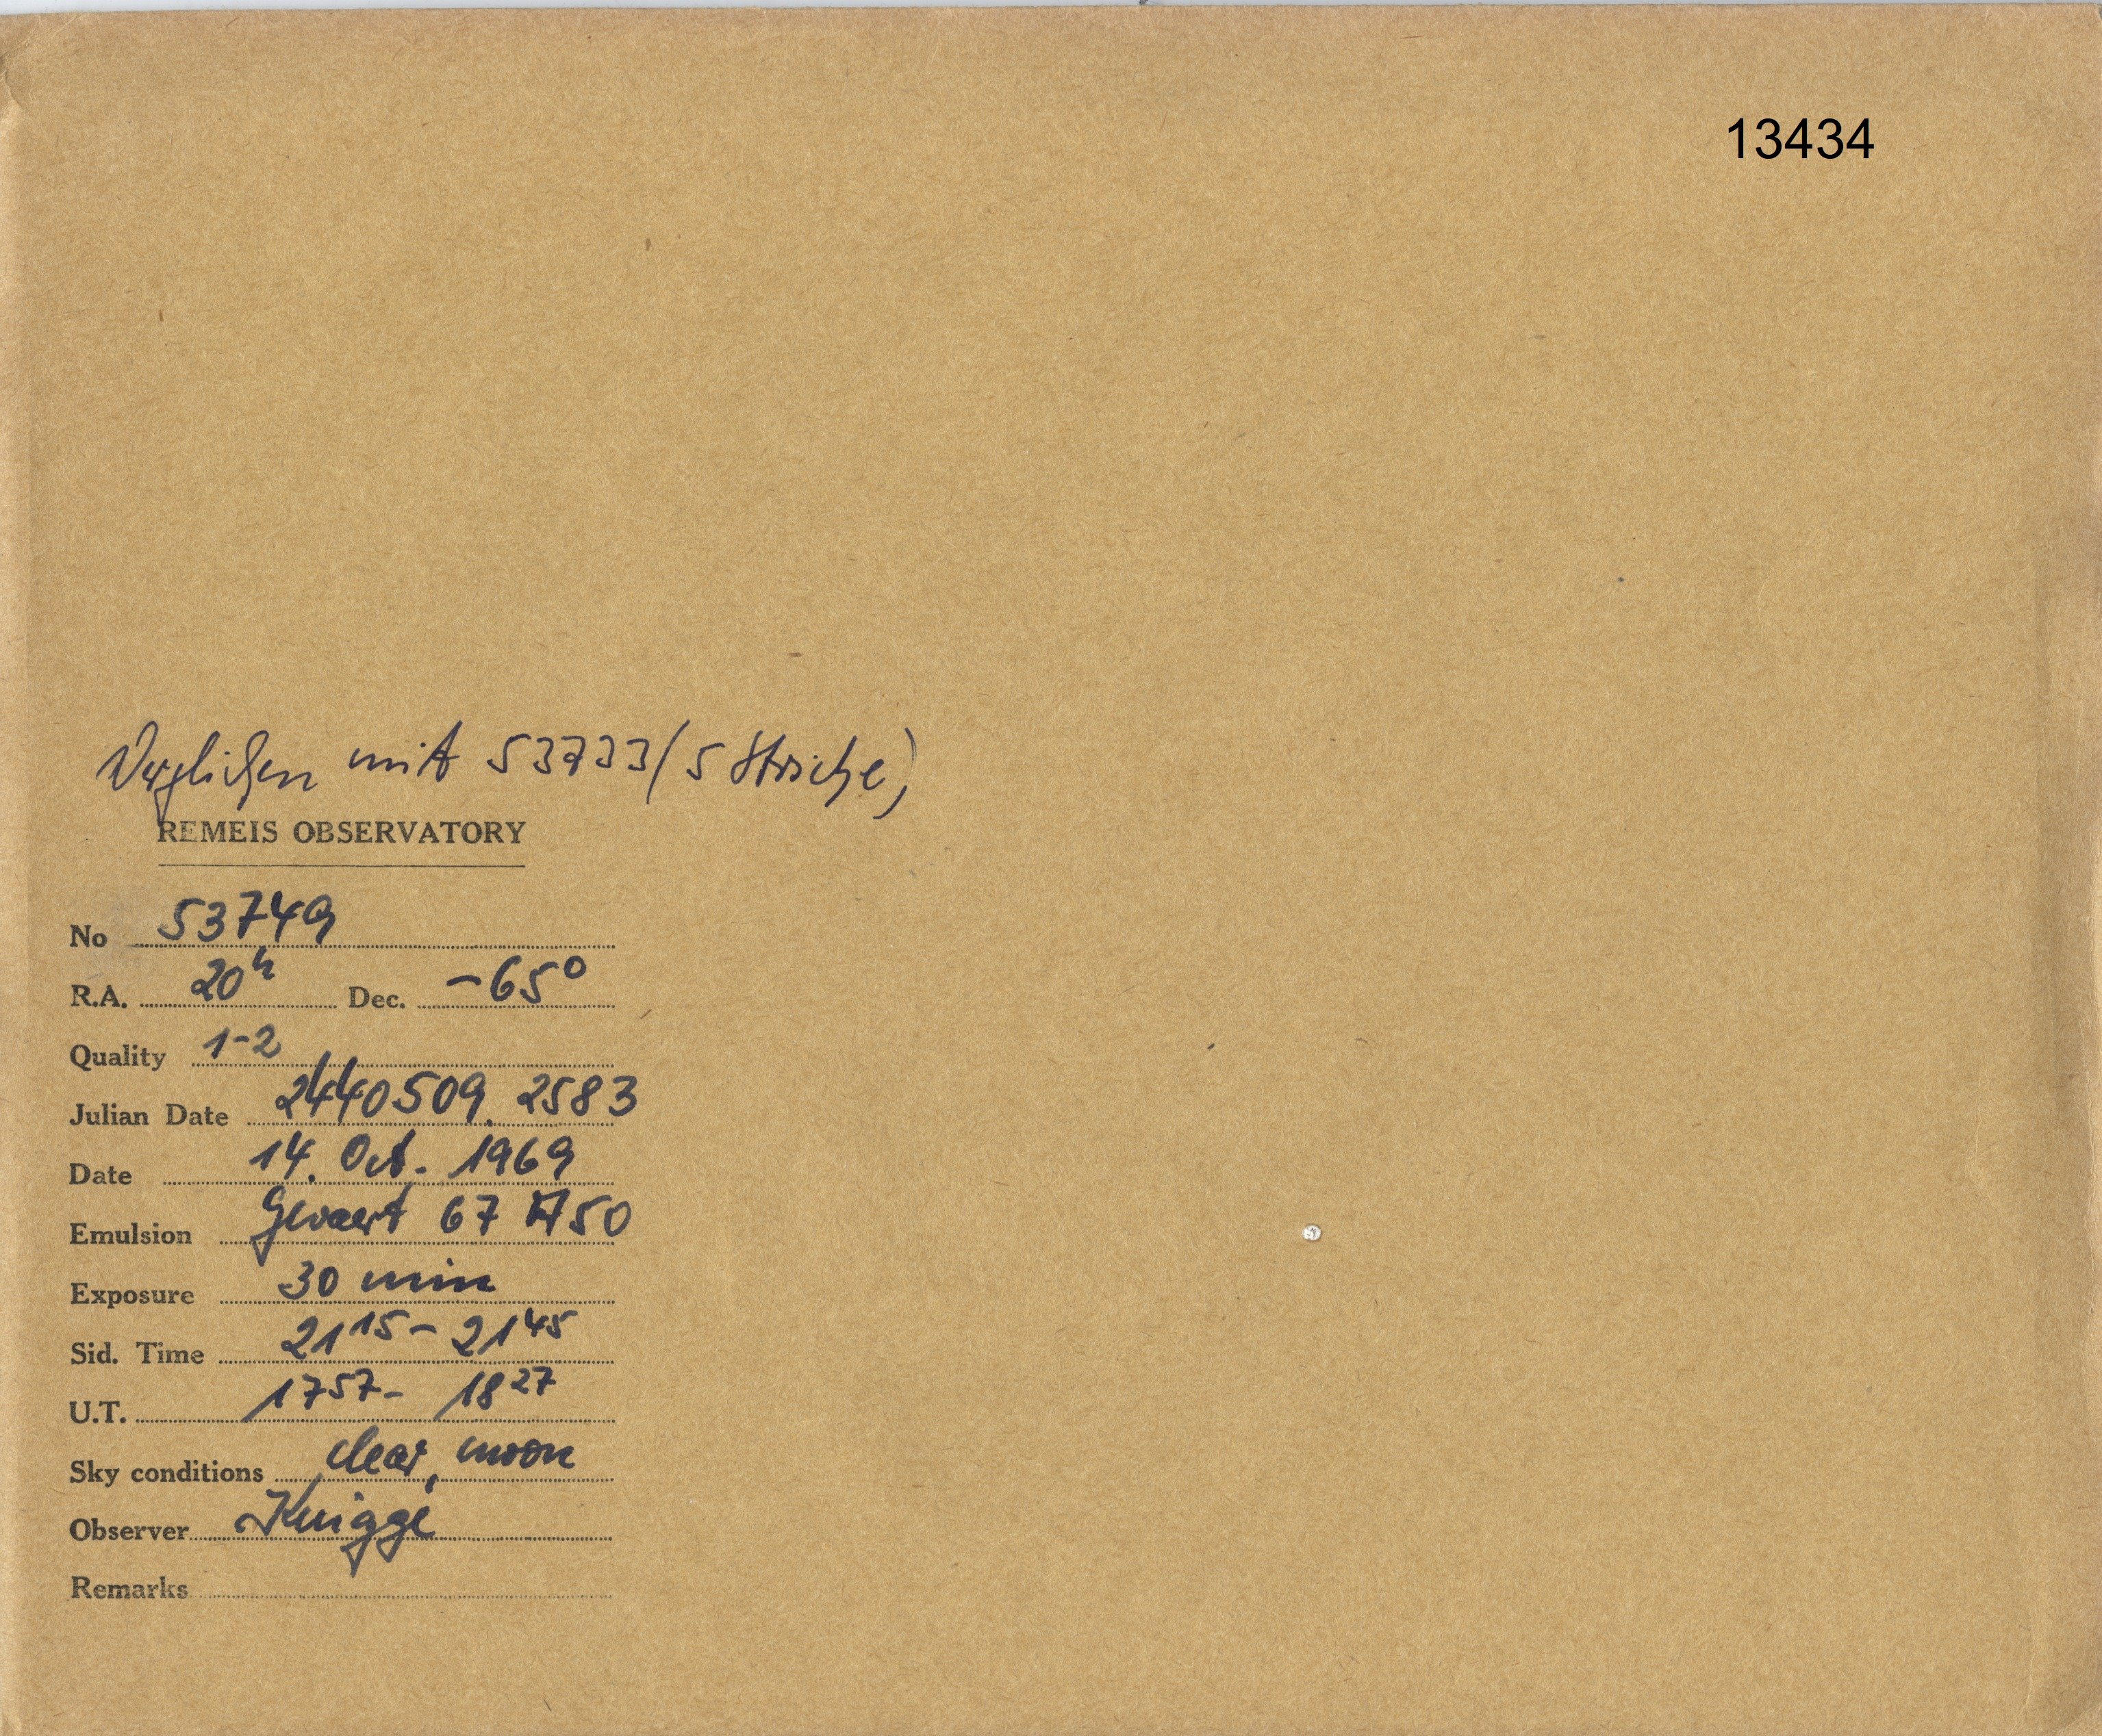 13434
Verglichen mit 53733 (5 Striche)
REMEIS OBSERVATORY
No 53749
R.A. 20h Dec. -65°
Quality 1-2
Julian Date 2440509.2583
Date 14. Oct. 1969
Emulsion Gevaert 67 A50
Exposure 30 min
Sid. Time 21 15 - 21 45
U.T. 17 57 - 18 27
Sky conditions clear, moon
Observer Knigge
Remarks